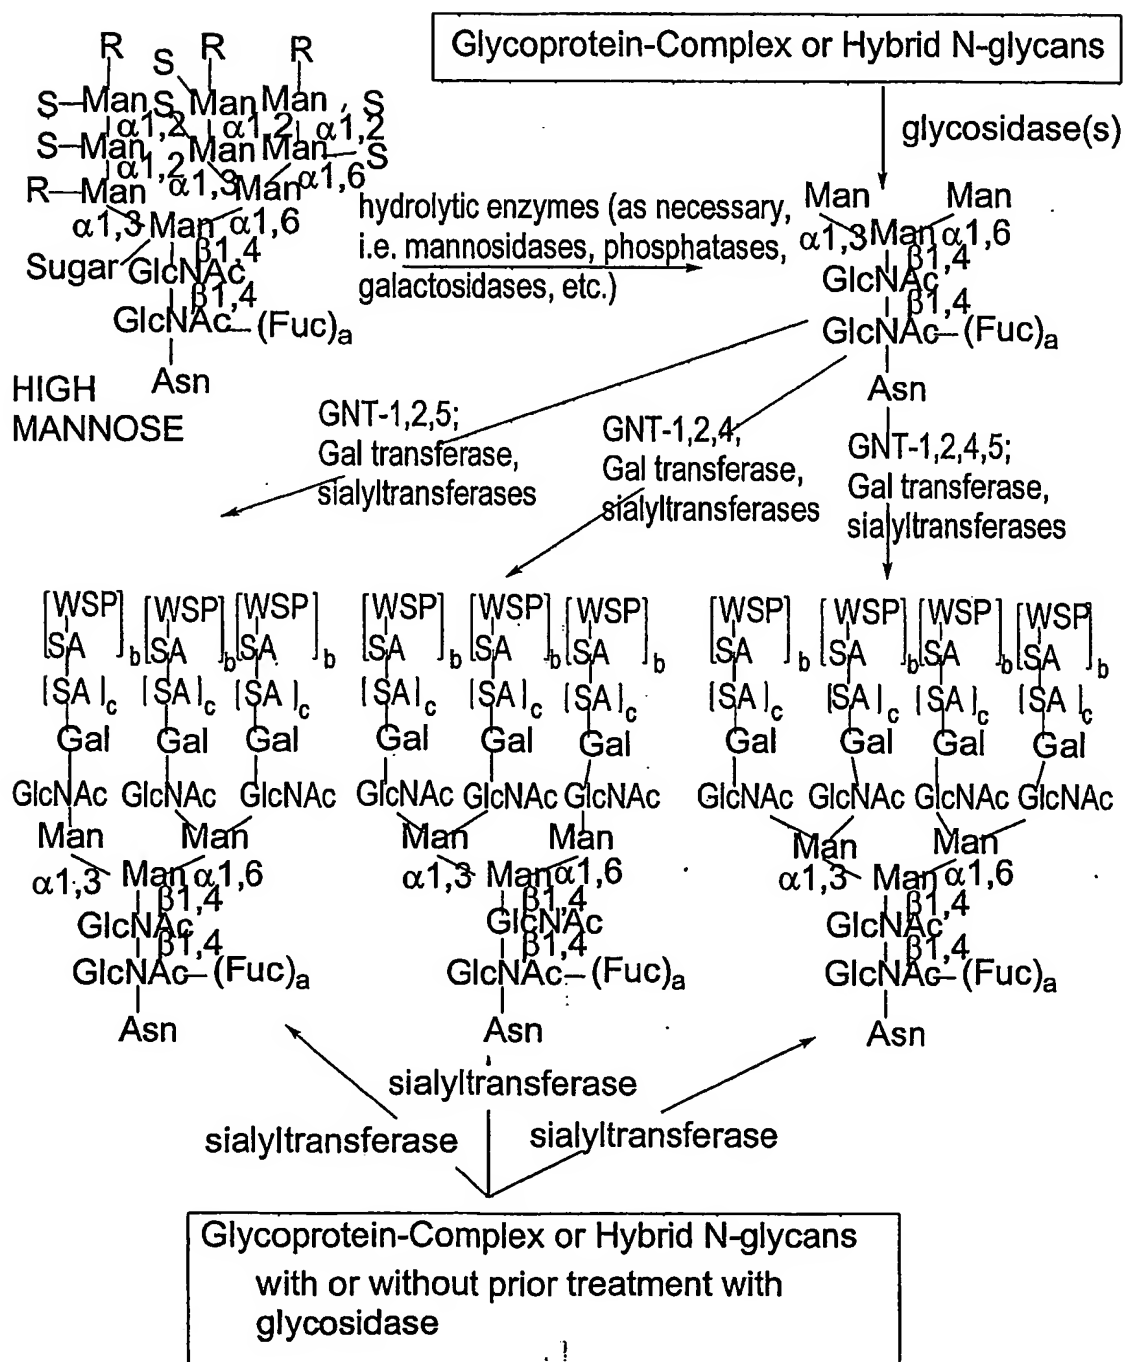 Glycoprotein-Complex or Hybrid N-glycans
glycosidase(s)
R
S
R
R
S–Man S Man Man S
α1,2 α1,2 α1,2
S–Man Man Man S
α1,2 α1,3 α1,6
R–Man Man
α1,3 Man α1,6
β1,4
Sugar GlcNAc
β1,4
GlcNAc–(Fuc)a
Asn
HIGH
MANNOSE
hydrolytic enzymes (as necessary,
i.e. mannosidases, phosphatases,
galactosidases, etc.)
Man Man
α1,3 Man α1,6
β1,4
GlcNAc
β1,4
GlcNAc–(Fuc)a
Asn
GNT-1,2,5;
Gal transferase,
sialyltransferases
GNT-1,2,4;
Gal transferase,
sialyltransferases
GNT-1,2,4,5;
Gal transferase,
sialyltransferases
[WSP] [WSP] [WSP]
[SA]b [SA]b [SA]b
[SA]c [SA]c [SA]c
Gal Gal Gal
GlcNAc GlcNAc GlcNAc
Man Man
α1,3 Man α1,6
β1,4
GlcNAc
β1,4
GlcNAc–(Fuc)a
Asn
[WSP] [WSP] [WSP]
[SA]b [SA]b [SA]b
[SA]c [SA]c [SA]c
Gal Gal Gal
GlcNAc GlcNAc GlcNAc
Man Man
α1,3 Man α1,6
β1,4
GlcNAc
β1,4
GlcNAc–(Fuc)a
Asn
[WSP] [WSP] [WSP] [WSP]
[SA]b [SA]b [SA]b [SA]b
[SA]c [SA]c [SA]c [SA]c
Gal Gal Gal Gal
GlcNAc GlcNAc GlcNAc GlcNAc
Man Man
α1,3 Man α1,6
β1,4
GlcNAc
β1,4
GlcNAc–(Fuc)a
Asn
sialyltransferase
sialyltransferase
sialyltransferase
Glycoprotein-Complex or Hybrid N-glycans
with or without prior treatment with
glycosidase